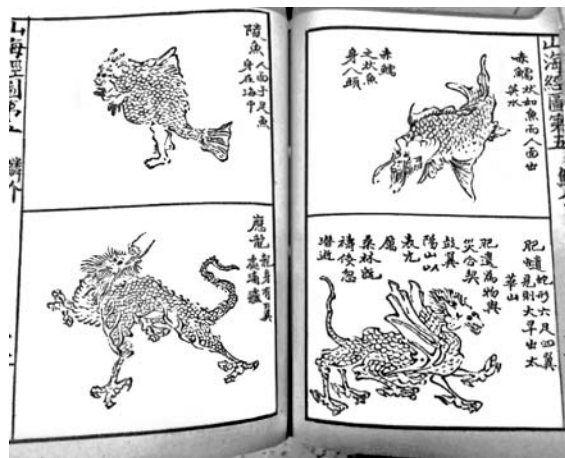 山海經圖第五
赤鱬狀如魚而人面出
英水
赤鱬
之狀魚
身人頭
肥𧔥蛇形六足四翼
見則大旱出太
華山
肥遺為物與
災合契
鼓翼
陽山以
表亢
厲
桑林既
禱倏忽
潛逝
陵魚人面手足魚
身在海中
應龍龍身有翼
處南極
山海經圖第五 鱗介